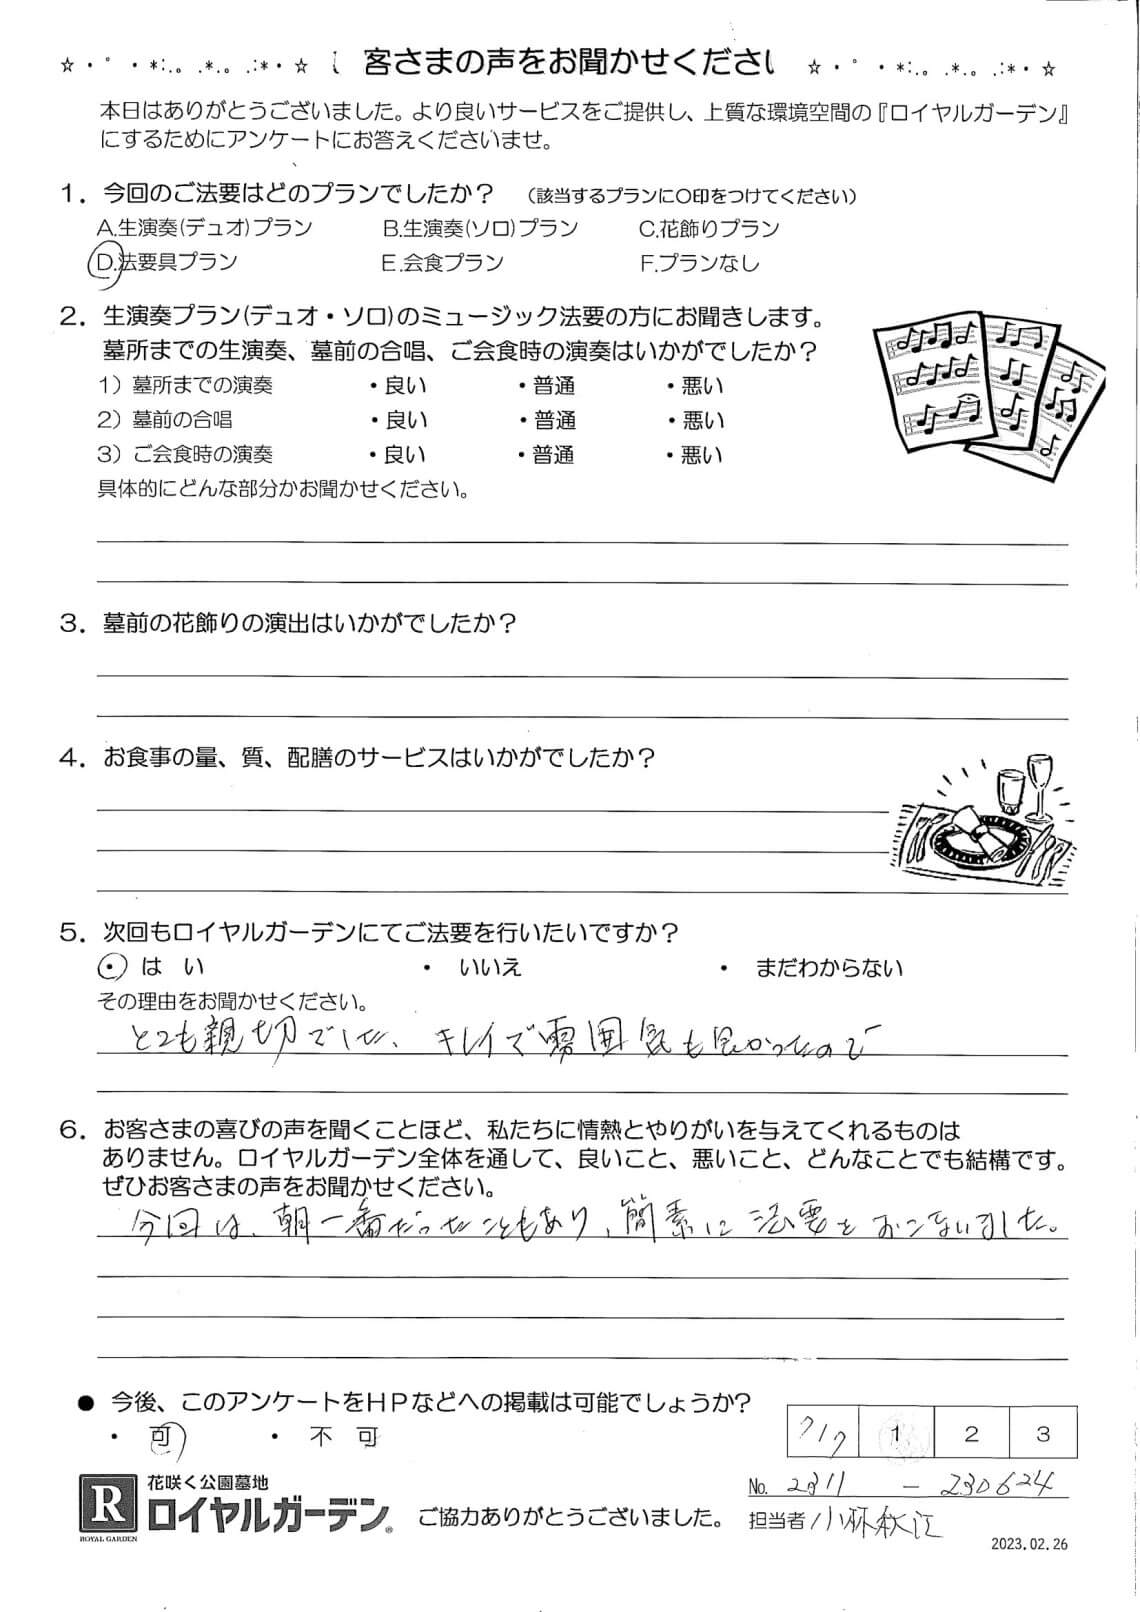 ☆・゜・*:.。.*.。.:*・☆ 客さまの声をお聞かせくださ ☆・゜・*:.。.*.。.:*・☆
本日はありがとうございました。より良いサービスをご提供し、上質な環境空間の『ロイヤルガーデン』
にするためにアンケートにお答えくださいませ。
1．今回のご法要はどのプランでしたか？ （該当するプランに○印をつけてください）
A.生演奏(デュオ)プラン B.生演奏(ソロ)プラン C.花飾りプラン
D.法要具プラン E.会食プラン F.プランなし
2．生演奏プラン(デュオ・ソロ)のミュージック法要の方にお聞きします。
墓所までの生演奏、墓前の合唱、ご会食時の演奏はいかがでしたか？
1）墓所までの演奏 ・良い ・普通 ・悪い
2）墓前の合唱 ・良い ・普通 ・悪い
3）ご会食時の演奏 ・良い ・普通 ・悪い
具体的にどんな部分かお聞かせください。
3．墓前の花飾りの演出はいかがでしたか？
4．お食事の量、質、配膳のサービスはいかがでしたか？
5．次回もロイヤルガーデンにてご法要を行いたいですか？
・ はい ・ いいえ ・ まだわからない
その理由をお聞かせください。
とても親切でした、キレイで雰囲気も良かったので
6．お客さまの喜びの声を聞くことほど、私たちに情熱とやりがいを与えてくれるものは
ありません。ロイヤルガーデン全体を通して、良いこと、悪いこと、どんなことでも結構です。
ぜひお客さまの声をお聞かせください。
今回は、朝一番だったこともあり、簡素に法要をおこないました。
● 今後、このアンケートをＨＰなどへの掲載は可能でしょうか?
・ 可 ・ 不 可
1 2 3
R ROYAL GARDEN
花咲く公園墓地
ロイヤルガーデン®
ご協力ありがとうございました。
No. 2311 － 230624
担当者 小林秋江
2023.02.26